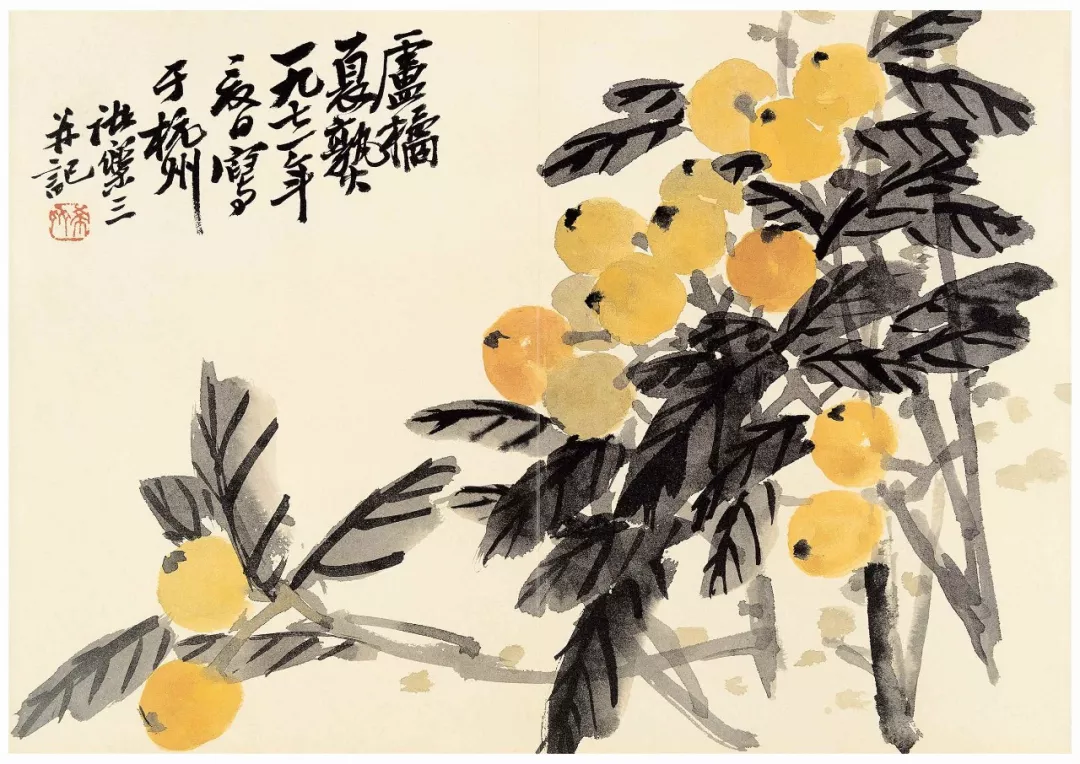 盧橘
夏熟
一九七一年
春日寫
于杭州
諸樂三
并記